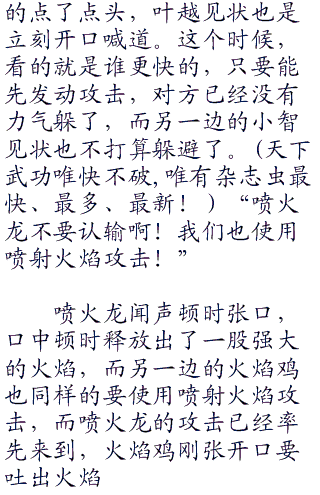 的点了点头，叶越见状也是
立刻开口喊道。这个时候，
看的就是谁更快的，只要能
先发动攻击，对方已经没有
力气躲了，而另一边的小智
见状也不打算躲避了。(天下
武功唯快不破,唯有杂志虫最
快、最多、最新！)“喷火
龙不要认输啊！我们也使用
喷射火焰攻击！”
喷火龙闻声顿时张口，
口中顿时释放出了一股强大
的火焰，而另一边的火焰鸡
也同样的要使用喷射火焰攻
击，而喷火龙的攻击已经率
先来到，火焰鸡刚张开口要
吐出火焰